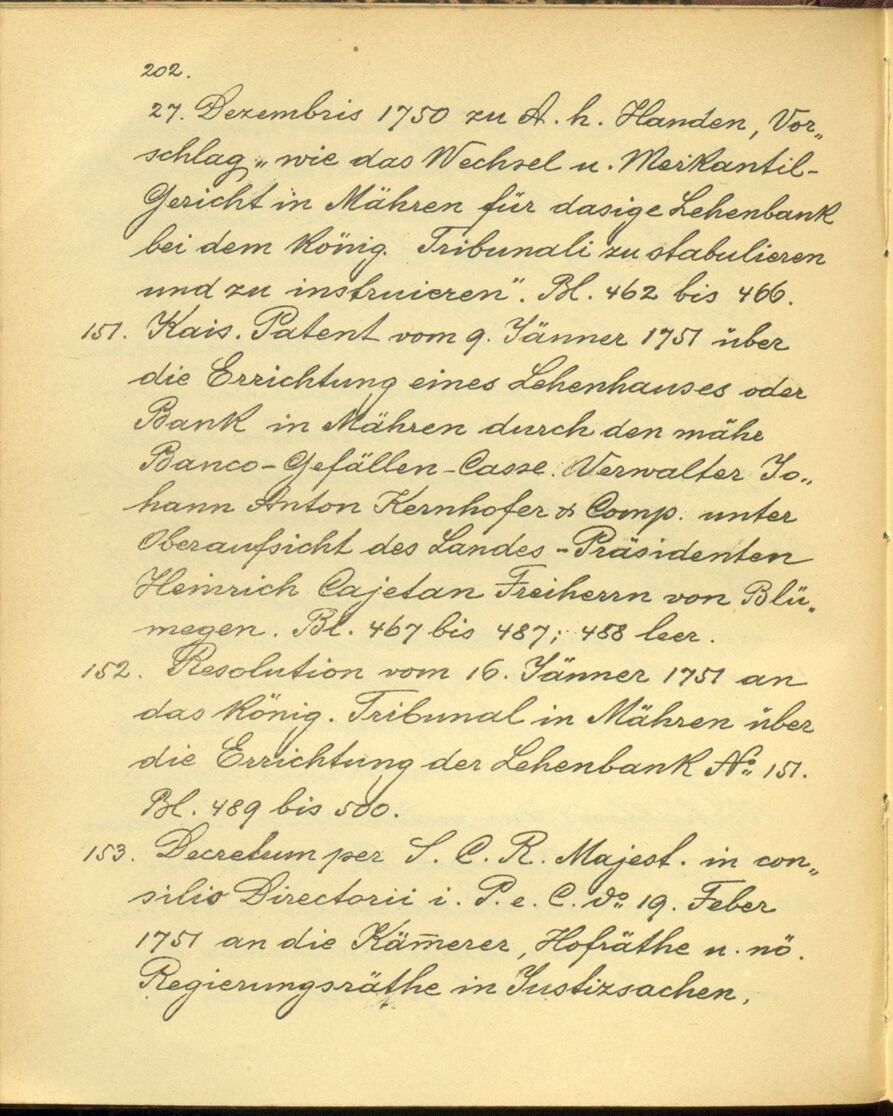 202.
27. Dezembris 1750 zu A. h. Handen, Vor„
schlag „wie das Wechsel u. Merkantil-
Gericht in Mähren für dasige Lehenbank
bei dem König. Tribunali zu stabulieren
und zu instruieren“. Bl. 462 bis 466.
151. Kais. Patent vom 9. Jänner 1751 über
die Errichtung eines Lehenhauses oder
Bank in Mähren durch den mähr
Banco-Gefällen-Casse Verwalter Jo„
hann Anton Kernhofer & Comp. unter
Oberaufsicht des Landes-Präsidenten
Heinrich Cajetan Freiherrn von Blü„
megen. Bl. 467 bis 487; 488 leer.
152. Resolution vom 16. Jänner 1751 an
das König. Tribunal in Mähren über
die Errichtung der Lehenbank No. 151.
Bl. 489 bis 500.
153. Decretum per S. C. R. Majest. in con„
silio Directorii i. P. e. C. do. 19. Feber
1751 an die Käm̄erer, Hofräthe u. nö.
Regierungsräthe in Justizsachen,